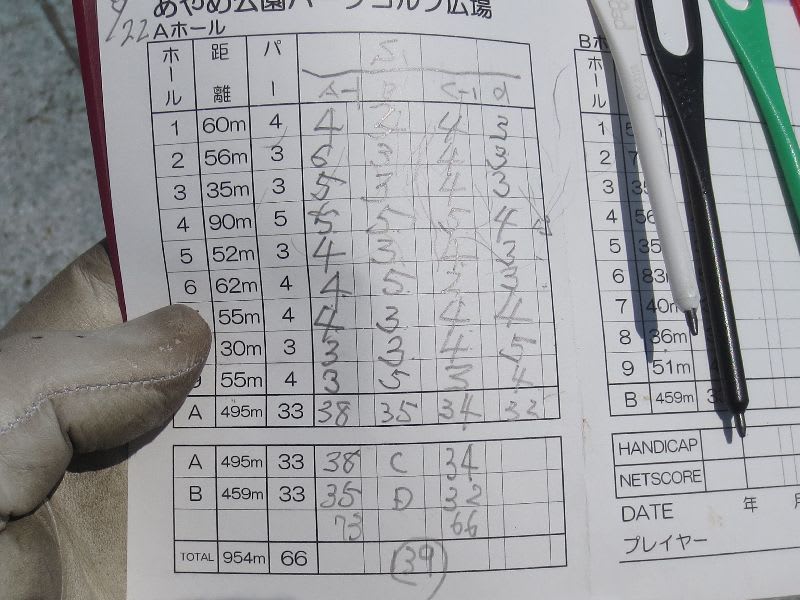 9/22
あやめ公園パークゴルフ広場
Aホール
ホール 距離 パー A-1 B C-1 d
1 60m 4 4 4 3
2 56m 3 6 3 4 3
3 35m 3 5 3 4 3
4 90m 5 5 5 5 4
5 52m 3 4 3 4 3
6 62m 4 4 5 2 3
55m 4 4 3 4 4
30m 3 3 3 4 5
9 55m 4 3 5 3 4
A 495m 33 38 35 34 33
A 495m 33 38 C 34
B 459m 33 35 D 32
73 66
TOTAL 954m 66 39
Bホ
ホール
1
2
3
4 56
5 35
6 83m
7 40m
8 36m
9 51m
B 459m
HANDICAP
NETSCORE
DATE 年 月
プレイヤー